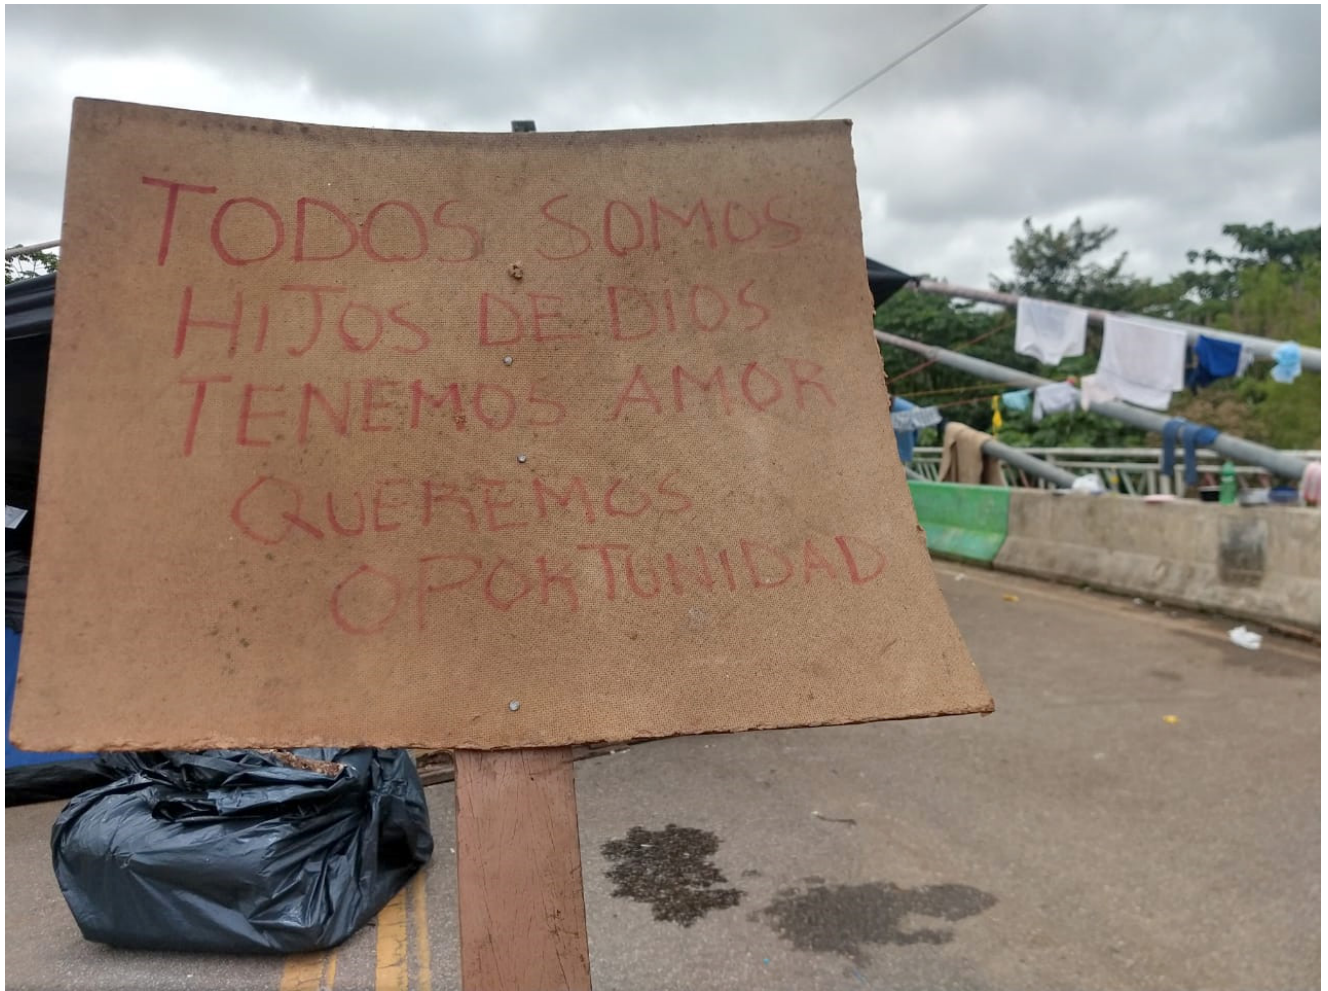 TODOS SOMOS
HIJOS DE DIOS
TENEMOS AMOR
QUEREMOS
OPORTUNIDAD